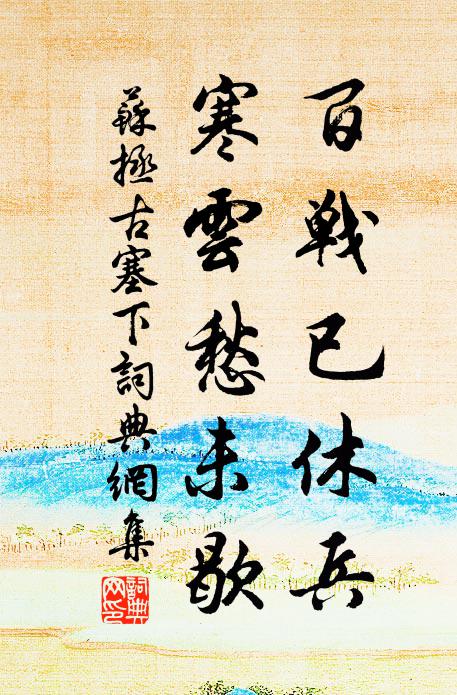 百戦已休兵
寒雲愁未歇
蘇拯古塞下詞典網集